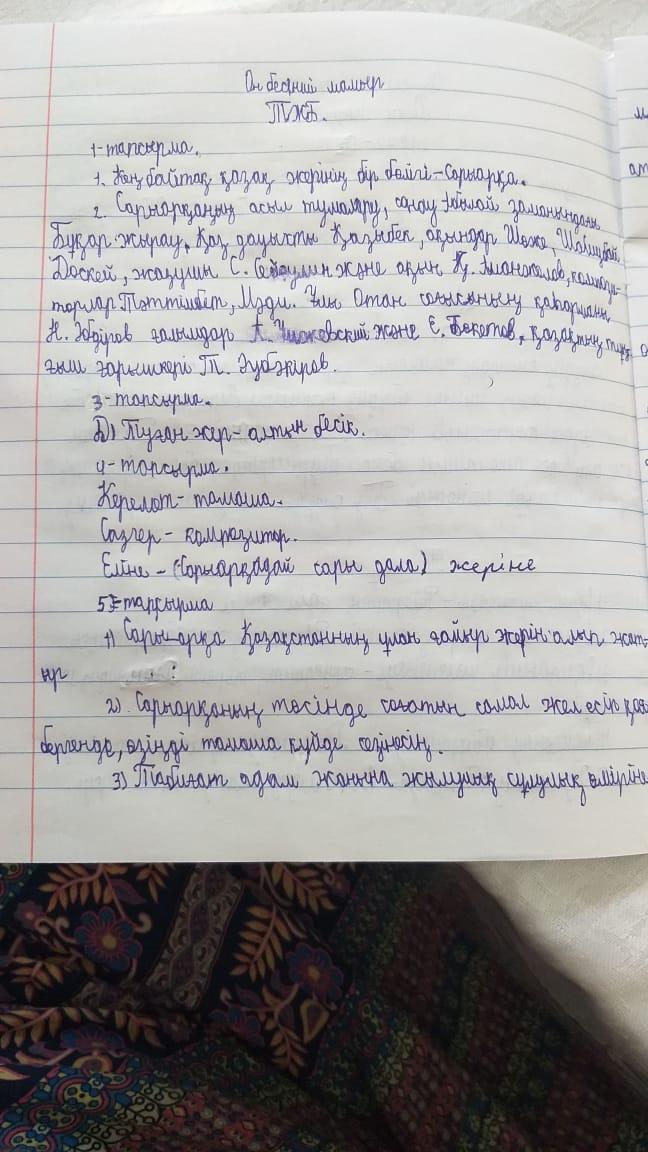 Он бесінші мамыр
ТЖБ.
1-тапсырма.
1. Кең байтақ қазақ жерінің бір бөлігі-Сарыарқа.
2. Сарыарқаның асыл тумалары, сонау Абылай заманындағы
Бұқар жырау, Қаз дауысты Қазыбек, ақындар Шөже, Шашубай,
Доскей, жазушы С. Сейфуллин және ақын Қ. Аманжолов, компози-
торлар Тәттімбет, Мәди. Ұлы Отан соғысының қаһарманы
Н. Әбдіров ғалымдар А. және Е. Бекетов, қазақтың тұң-
ғыш ғарышкері Т. Әубәкіров.
3-тапсырма.
Д) Туған жер-алтын бесік.
4-тапсырма.
Керемет-тамаша.
Сазгер-композитор.
Еліне-(Сарыарқадай сары дала) жеріне
5-тапсырма
1) Сарыарқа Қазақстанның ұлан ғайыр жерін алып жат-
ыр ?
2) Сарыарқаның төсінде соғатын самал жел есіп қоя
бергенде, өзіңді тамаша күйде сезінесің.
3) Табиғат адам жанына жылулық сұлулық өміріне